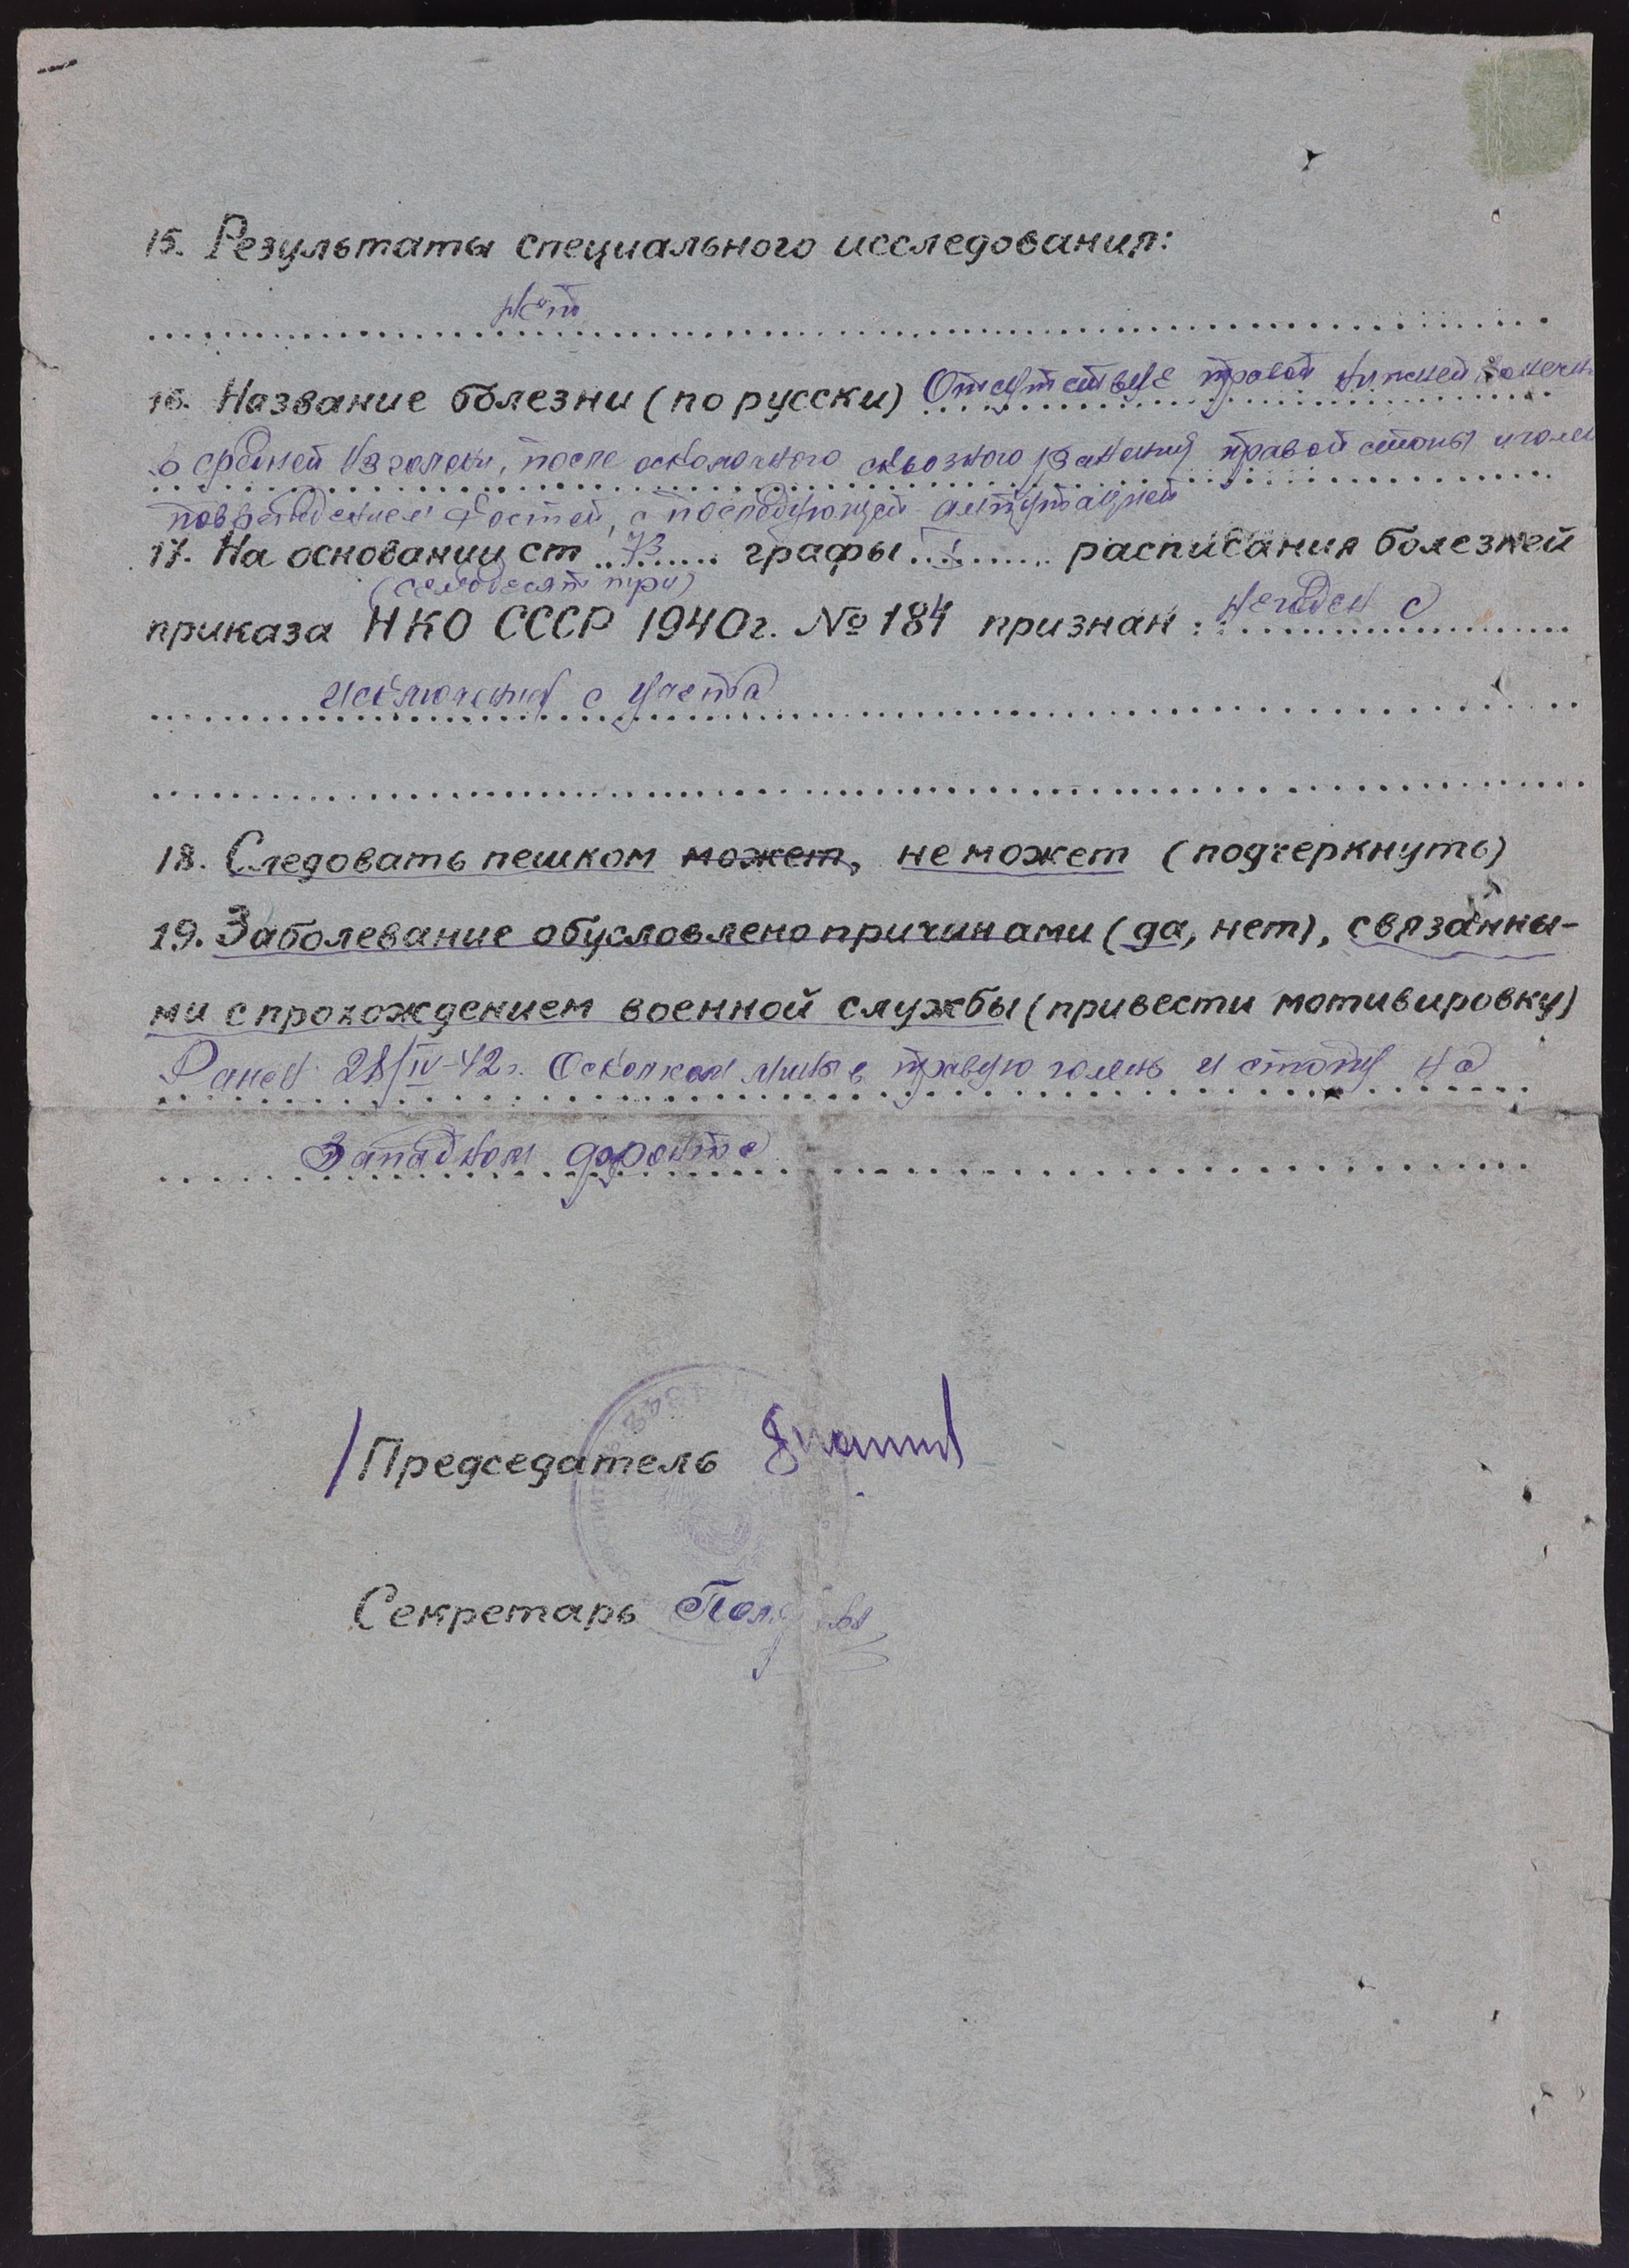 15. Результаты специального исследования:
Нет
16. Название болезни (по русски) Отсутствие правой нижней конечн
в средней ⅓ голени, после осколочного сквозного ранения правой стопы и голен
повреждением костей, с последующей ампутацией
17. На основании ст 73 графы I расписания болезней
(семьдесят три)
приказа НКО СССР 1940г. № 184 признан: Негоден с
исключения с учета
18. Следовать пешком может, не может (подчеркнуть)
19. Заболевание обусловлено причинами (да, нет), связанны-
ми с прохождением военной службы (привести мотивировку)
Ранен 28/IV-42г. Осколком мины в правую голень и стопу на
Западном фронте
Председатель
Секретарь